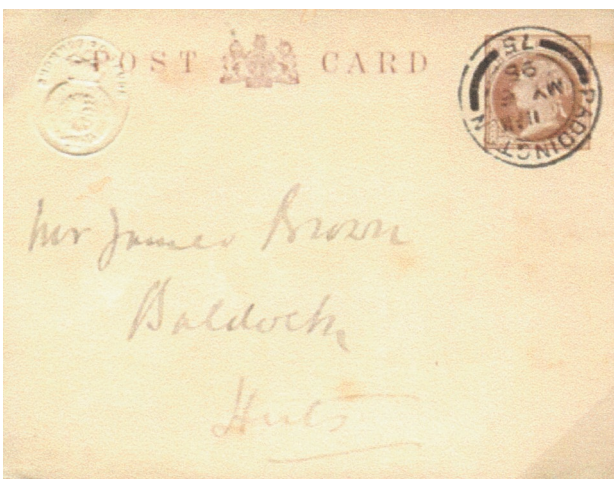 POST CARD
PADDINGTON
MY
98
75
Mr James Brown
Baldock
Herts